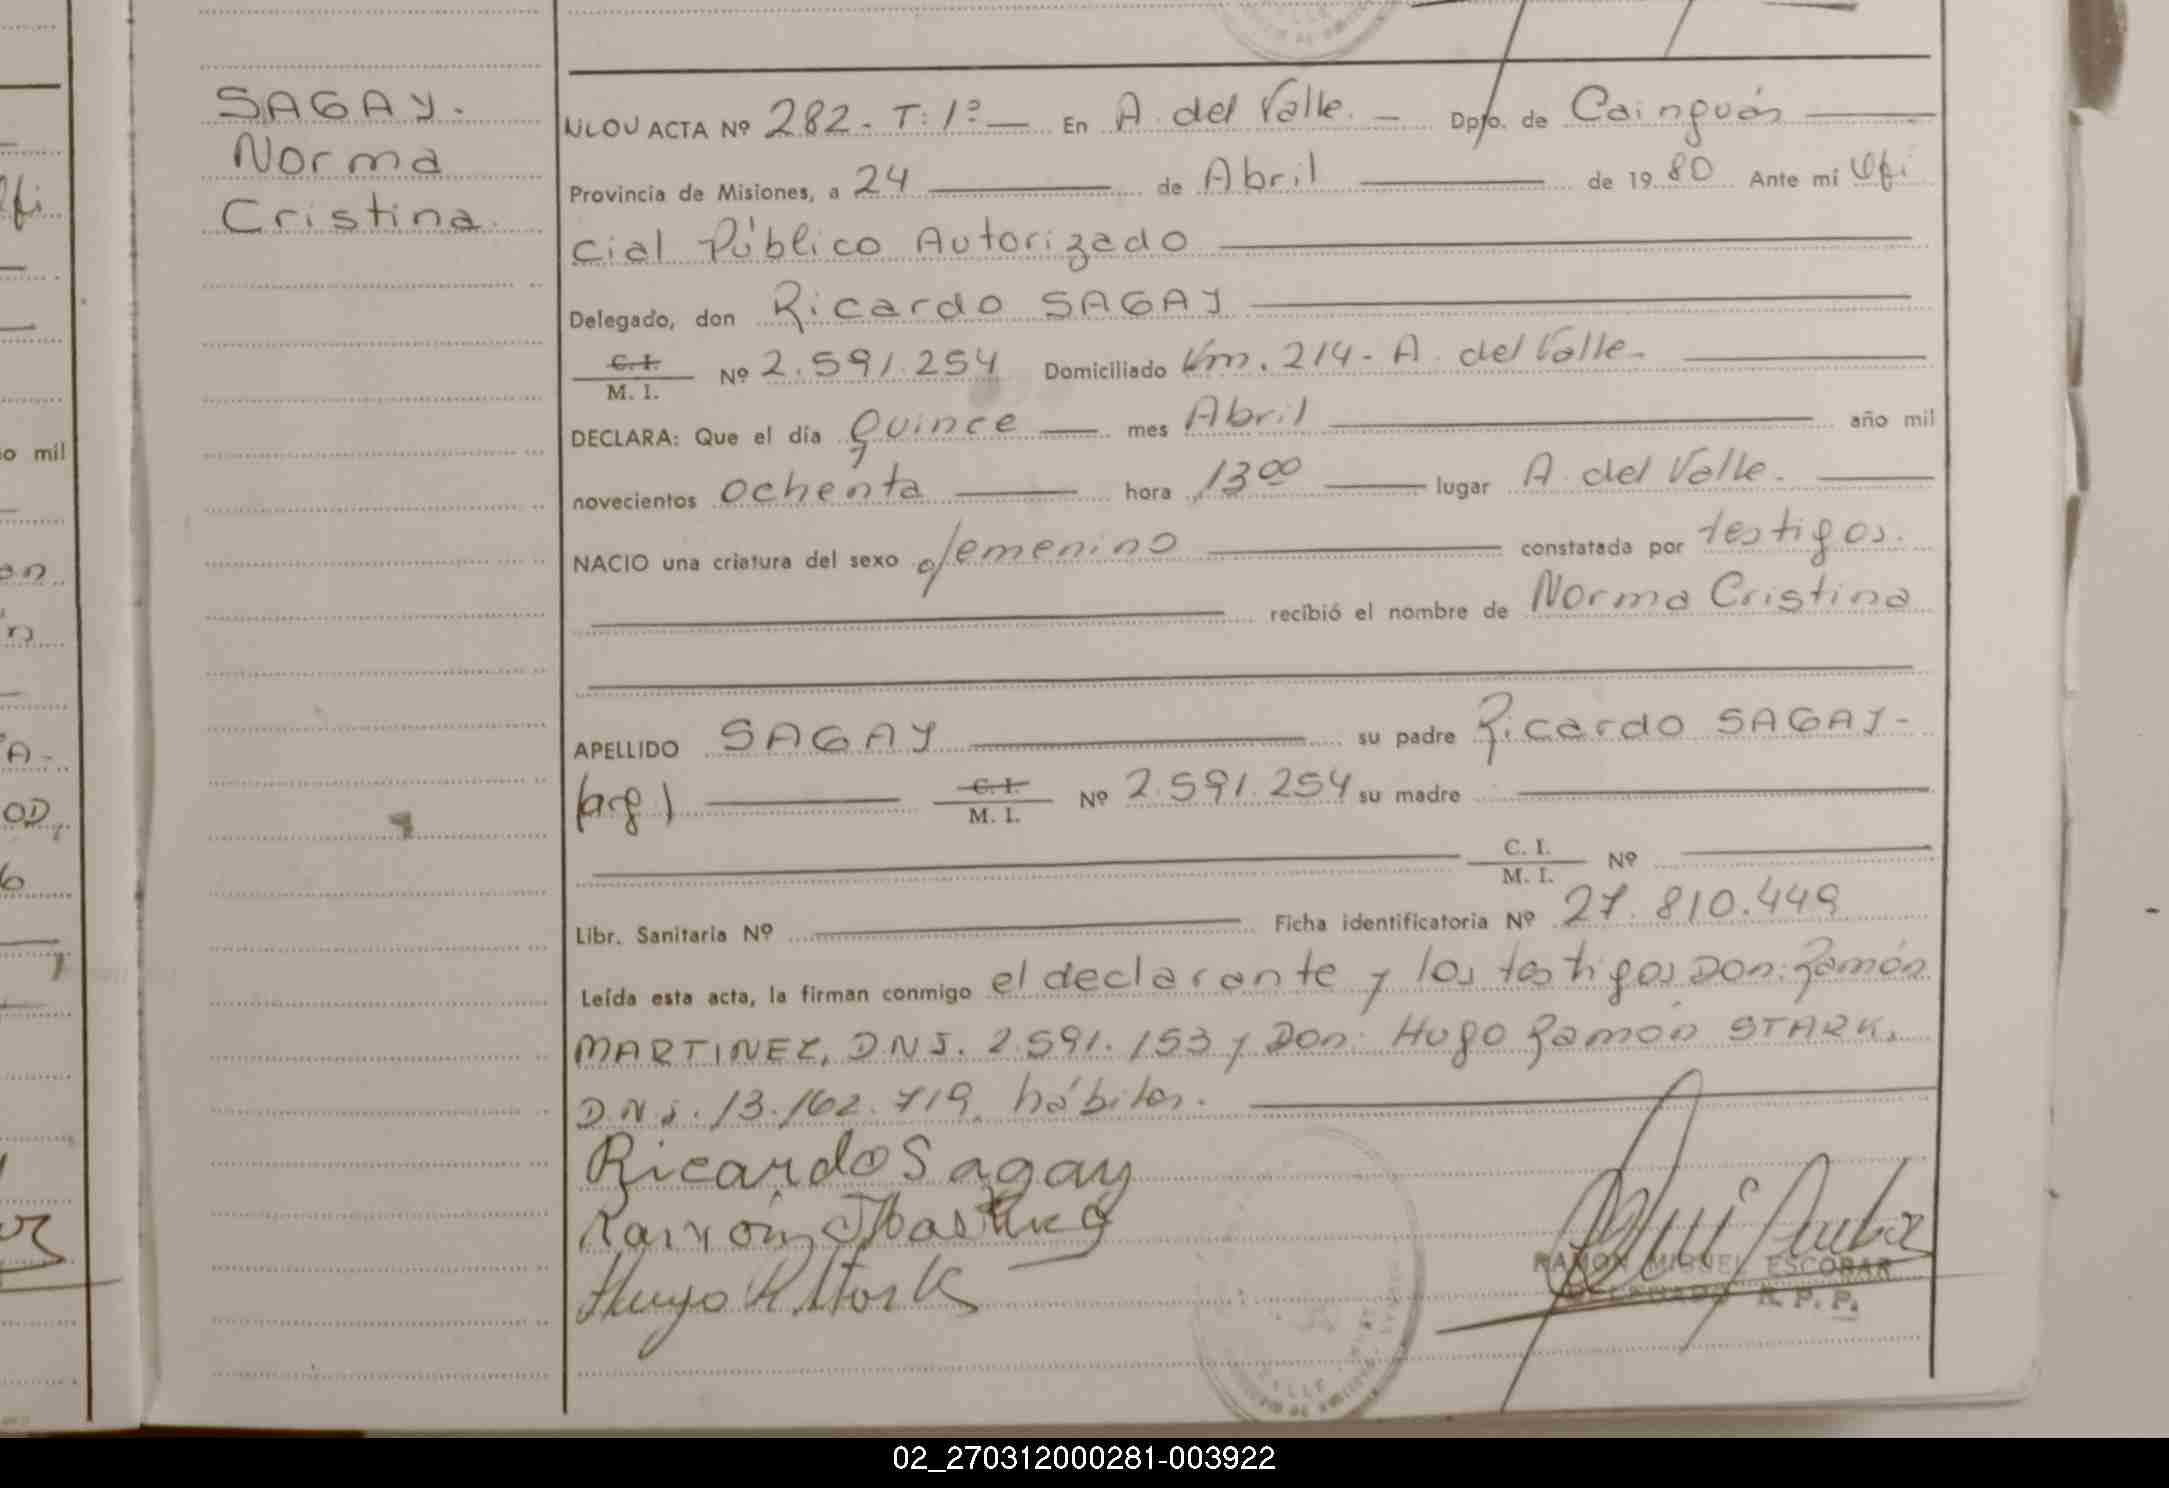 SAGAY.
Norma
Cristina.
ACTA Nº 282. T: 1º En A. del Valle. Dpto. de Cainguás
Provincia de Misiones, a 24 de Abril de 1980 Ante mí Ofi
cial Público Autorizado
Delegado, don Ricardo SAGAY
C. I.
M. I. Nº 2.591.254 Domiciliado Km. 214 - A. del Valle.
DECLARA: Que el día Quince mes Abril año mil
novecientos ochenta hora 13⁰⁰ lugar A. del Valle.
NACIO una criatura del sexo femenino constatada por testigos.
recibió el nombre de Norma Cristina
APELLIDO SAGAY su padre Ricardo SAGAY -
(arg) C. I. M. I. Nº 2.591.254 su madre
C. I.
M. I. Nº
Libr. Sanitaria Nº Ficha identificatoria Nº 27.810.449
Leída esta acta, la firman conmigo el declarante y los testigos Don: Ramón
MARTINEZ, DNI. 2.591.153 y Don: Hugo Ramón STARK.
D.N.I. 13.162.719. hábiles.
Ricardo Sagay
Ramón
Hugo R Stark
RAMON MIGUEL ESCOBAR
DELEGADO R. P. P.
02_270312000281-003922